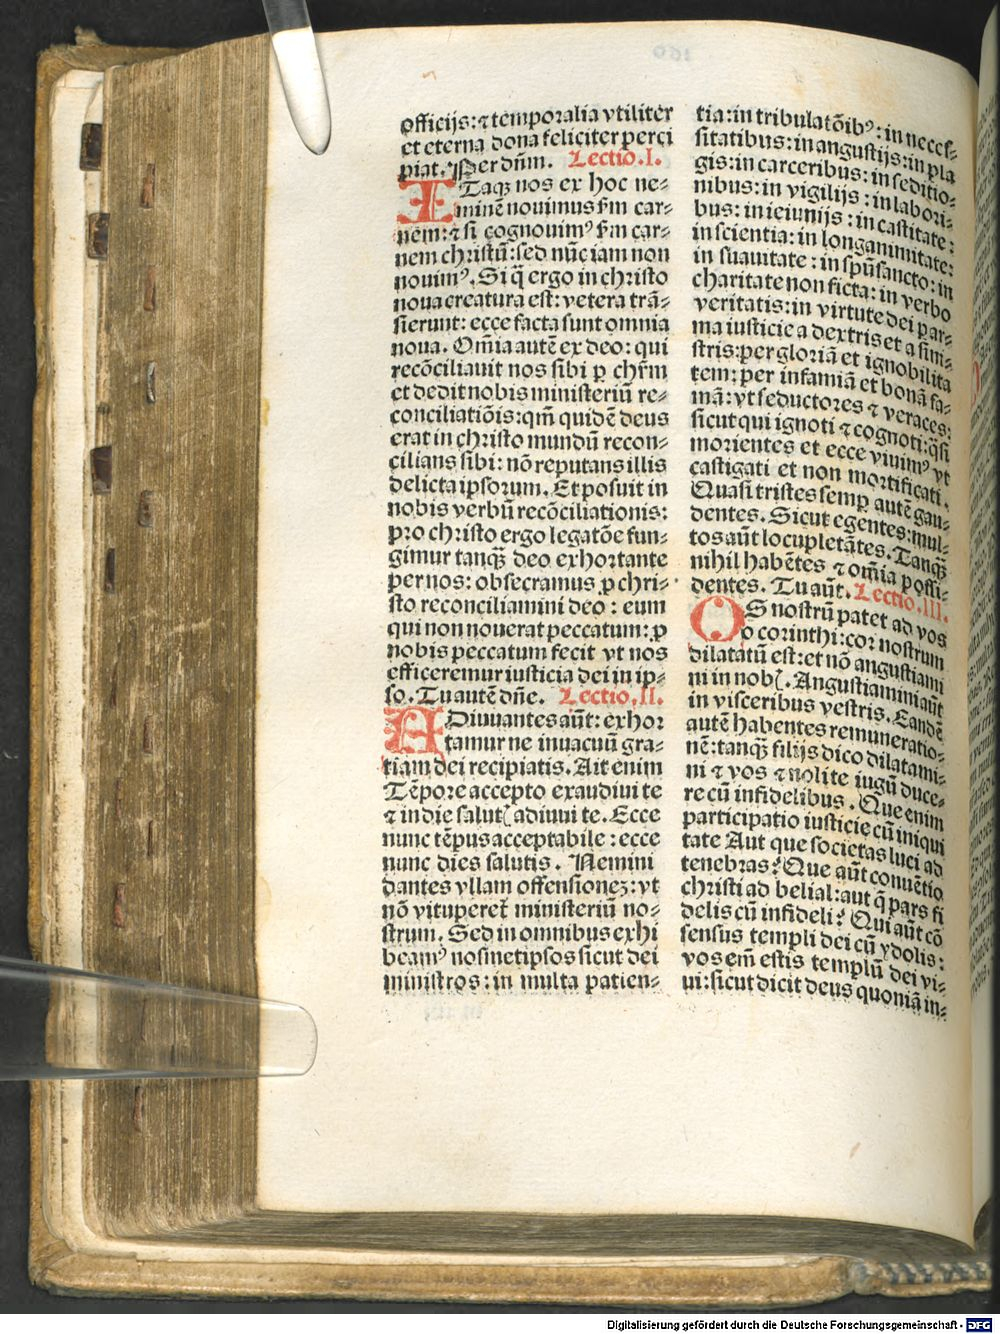 officijs: ⁊ temporalia vtiliter
et eterna dona feliciter perci
piat. Per dn̄m. Lectio .I.
ITaqꝫ nos ex hoc ne⸗
minē nouimus ẜm car⸗
nem: ⁊ si cognouimꝰ ẜm car⸗
nem christū: sed nūc iam non
nouimꝰ. Si q̄ ergo in christo
noua creatura est: vetera trā⸗
sierunt: ecce facta sunt omnia
noua. Om̄ia autē ex deo: qui
recōciliauit nos sibi ꝑ chr̄m
et dedit nobis ministeriū re⸗
conciliatiōis: qm̄ quidē deus
erat in christo mundū recon⸗
cilians sibi: nō reputans illis
delicta ipsorum. Et posuit in
nobis verbū recōciliationis:
pro christo ergo legatōe fun⸗
gimur tanqꝫ deo exhortante
per nos: obsecramus ꝓ chri⸗
sto reconciliamini deo: eum
qui non nouerat peccatum: ꝓ
nobis peccatum fecit vt nos
efficeremur iusticia dei in ip⸗
so. Tu autē dn̄e. Lectio .II.
ADiuuantes aūt: exhor
tamur ne inuacuū gra⸗
tiam dei recipiatis. Ait enim
Tēpore accepto exaudiui te
⁊ in die salutꝭ adiuui te. Ecce
nunc tēpus acceptabile: ecce
nunc dies salutis. Nemini
dantes vllam offensionez: vt
nō vituperet̄ ministeriū no⸗
strum. Sed in omnibus exhi
beamꝰ nosmetipsos sicut dei
ministros: in multa patien⸗
tia: in tribulatōibꝰ: in neces⸗
sitatibus: in angustijs: in pla
gis: in carceribus: in seditio⸗
nibus: in vigilijs: in labori⸗
bus: in ieiunijs: in castitate:
in scientia: in longanimitate:
in suauitate: in sp̄u sancto: in
charitate non ficta: in verbo
veritatis: in virtute dei par⸗
ma iusticie a dextris et a sini⸗
stris: per gloriā et ignobilita
tem: per infamiā et bonā fa⸗
mā: vt seductores ⁊ veraces:
sicut qui ignoti ⁊ cognoti: q̄si
morientes et ecce viuimꝰ vt
castigati et non mortificati.
Quasi tristes semꝑ autē gau⸗
dentes. Sicut egentes: mul⸗
tos aūt locupletātes. Tanqꝫ
nihil habētes ⁊ om̄ia possi⸗
dentes. Tu aūt. Lectio .III.
OS nostrū patet ad vos
o corinthi: cor nostrum
dilatatū est: et nō angustiami
ni in nobꝭ. Angustiamini aūt
in visceribus vestris. Eandē
autē habentes remuneratio⸗
nē: tanqꝫ filijs dico dilatami⸗
ni ⁊ vos ⁊ nolite iugū duce⸗
re cū infidelibus. Que enim
participatio iusticie cū iniqui
tate Aut que societas luci ad
tenebras? Que aūt conuētio
christi ad belial: aut q̄ pars fi
delis cū infideli? Qui aūt cō
sensus templi dei cū ydolis:
vos em̄ estis templū dei vi⸗
ui: sicut dicit deus quoniā in⸗
Digitalisierung gefördert durch die Deutsche Forschungsgemeinschaft - DFG